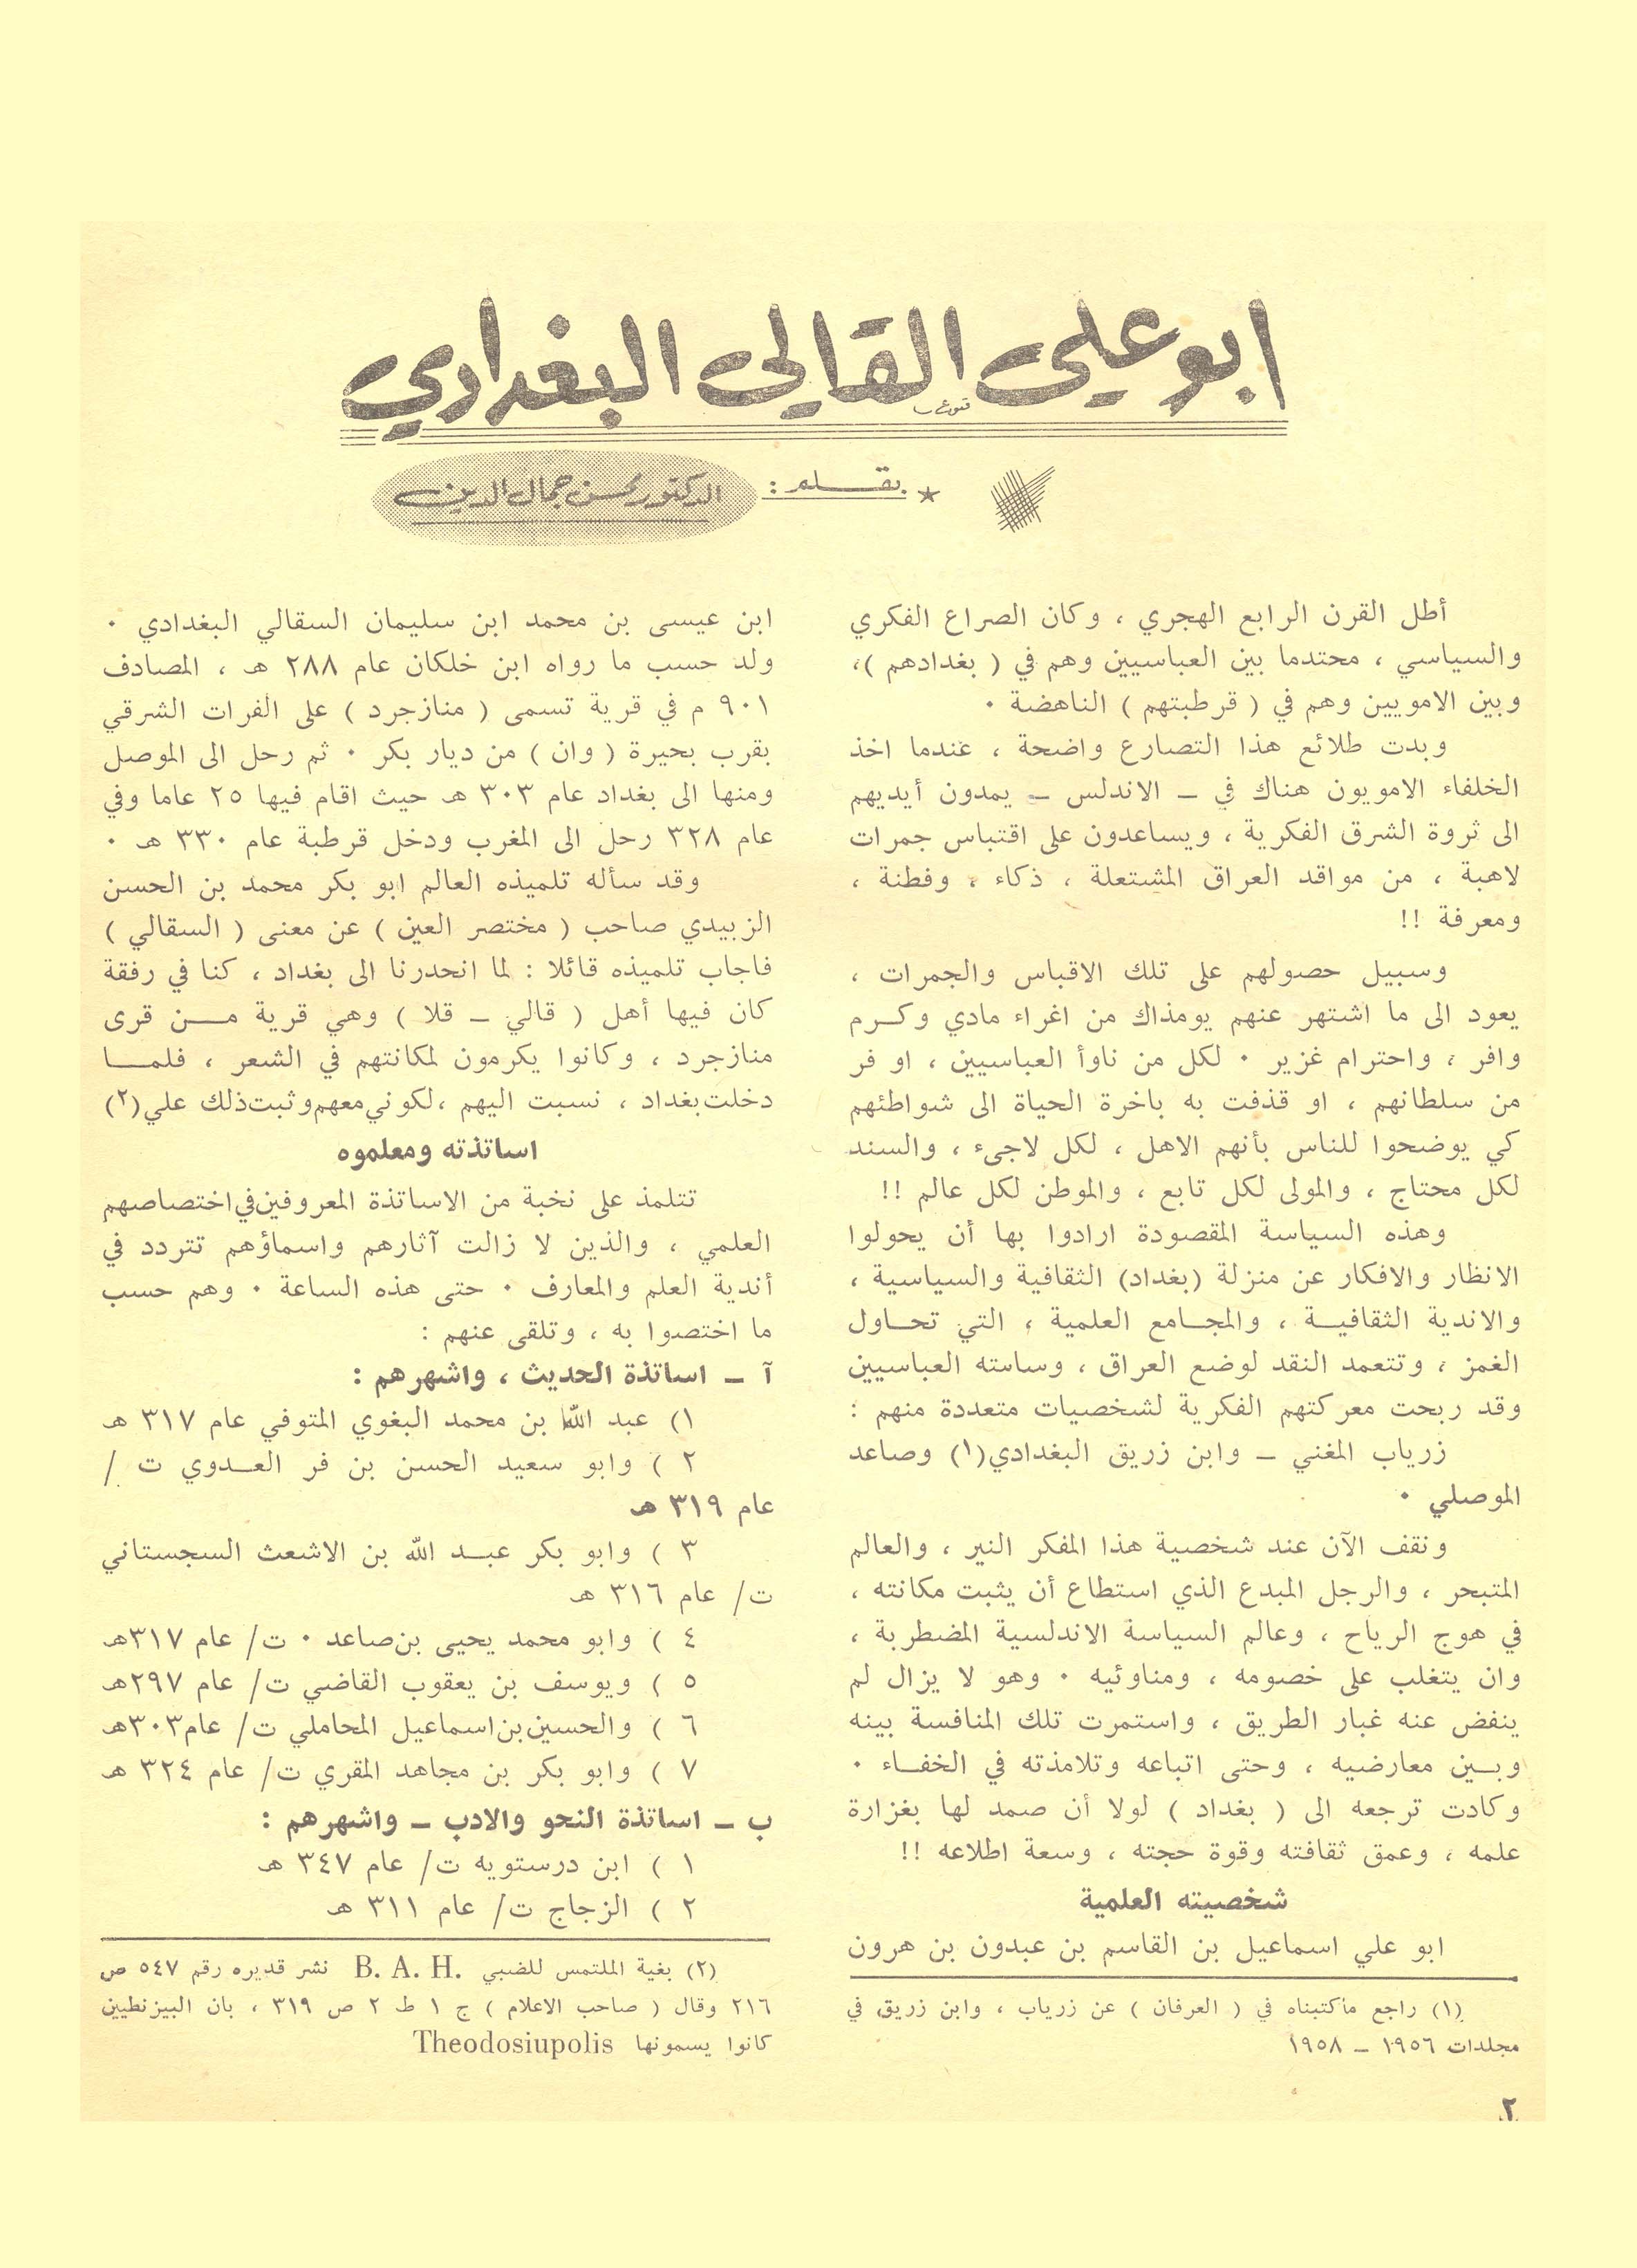 ابو علي القالي البغدادي
بقـــلم :
الدكتور محسن جمال الدين
أطل القرن الرابع الهجري ، وكان الصراع الفكري
والسياسي ، محتدما بين العباسيين وهم في ( بغدادهم )،
وبين الامويين وهم في ( قرطبتهم ) الناهضة ٠
وبدت طلائع هذا التصارع واضحة ، عندما اخذ
الخلفاء الامويون هناك في ـ الاندلس ـ يمدون أيديهم
الى ثروة الشرق الفكرية ، ويساعدون على اقتباس جمرات
لاهبة ، من مواقد العراق المشتعلة ، ذكاء ، وفطنة ،
ومعرفة !!
وسبيل حصولهم على تلك الاقباس والجمرات ،
يعود الى ما اشتهر عنهم يومذاك من اغراء مادي وكـرم
وافر ، واحترام غزير ٠ لكل من ناوأ العباسيين ، او فر
من سلطانهم ، او قذفت به باخرة الحياة الى شواطئهم
كي يوضحوا للناس بأنهم الاهل ، لكل لاجىء ، والسند
لكل محتاج ، والمولى لكل تابع ، والموطن لكل عالم !!
وهذه السياسة المقصودة ارادوا بها أن يحولوا
الانظار والافكار عن منزلة (بغداد) الثقافية والسياسية ،
والاندية الثقافيـة ، والمجـامع العلمية ، التي تحـاول
الغمز ، وتتعمد النقد لوضع العراق ، وساسته العباسيين
وقد ربحت معركتهم الفكرية لشخصيات متعددة منهم :
زرياب المغني ـ وابن زريق البغدادي(١) وصاعد
الموصلي ٠
ونقف الآن عند شخصية هذا المفكر النير ، والعالم
المتبحر ، والرجل المبدع الذي استطاع أن يثبت مكانته ،
في هوج الرياح ، وعالم السياسة الاندلسية المضطربة ،
وان يتغلب على خصومه ، ومناوئيه ٠ وهو لا يزال لم
ينفض عنه غبار الطريق ، واستمرت تلك المنافسة بينه
وبـين معارضيه ، وحتى اتباعه وتلامذته في الخفـاء ٠
وكادت ترجعه الى ( بغداد ) لولا أن صمد لها بغزارة
علمه ، وعمق ثقافته وقوة حجته ، وسعة اطلاعه !!
شخصيته العلمية
ابو علي اسماعيل بن القاسم بن عبدون بن هرون
(١) راجع ماكتبناه في ( العرفان ) عن زرياب ، وابن زريق في
مجلدات ١٩٥٦ ـ ١٩٥٨
ابن عيسى بن محمد ابن سليمان السقالي البغدادي ٠
ولد حسب ما رواه ابن خلكان عام ٢٨٨ هـ ، المصادف
٩٠١ م في قرية تسمى ( منازجرد ) على الفرات الشرقي
بقرب بحيرة ( وان ) من ديار بكر ٠ ثم رحل الى الموصل
ومنها الى بغداد عام ٣٠٣ هـ حيث اقام فيها ٢٥ عاما وفي
عام ٣٢٨ رحل الى المغرب ودخل قرطبة عام ٣٣٠ هـ ٠
وقد سأله تلميذه العالم ابو بكر محمد بن الحسن
الزبيدي صاحب ( مختصر العين ) عن معنى ( السقالي )
فاجاب تلميذه قائلا : لما انحدرنا الى بغداد ، كنا في رفقة
كان فيها أهل ( قالي ـ قلا ) وهي قرية مـــن قرى
منازجرد ، وكانوا يكرمون لمكانتهم في الشعر ، فلمـــا
دخلت بغداد ، نسبت اليهم ، لكوني معهم وثبت ذلك علي(٢)
اساتذته ومعلموه
تتلمذ على نخبة من الاساتذة المعروفين في اختصاصهم
العلمي ، والذين لا زالت آثارهم واسماؤهم تتردد في
أندية العلم والمعارف ٠ حتى هذه الساعة ٠ وهم حسب
ما اختصوا به ، وتلقى عنهم :
آ ـ اساتذة الحديث ، واشهرهم :
١) عبد الله بن محمد البغوي المتوفي عام ٣١٧ هـ
٢ ) وابو سعيد الحسن بن فر العـدوي ت /
عام ٣١٩ هـ
٣ ) وابو بكر عبـد الله بن الاشعث السجستاني
ت/ عام ٣١٦ هـ
٤ ) وابو محمد يحيى بن صاعد ٠ ت/ عام ٣١٧هـ
٥ ) ويوسف بن يعقوب القاضي ت/ عام ٢٩٧هـ
٦ ) والحسين بن اسماعيل المحاملي ت/ عام ٣٠٣هـ
٧ ) وابو بكر بن مجاهد المقري ت/ عام ٣٢٤ هـ
ب ـ اساتذة النحو والادب ـ واشهرهم :
١ ) ابن درستويه ت/ عام ٣٤٧ هـ
٢ ) الزجاج ت/ عام ٣١١ هـ
(٢) بغية الملتمس للضبي B. A. H. نشر قديره رقم ٥٤٧ ص
٢١٦ وقال ( صاحب الاعلام ) ج ١ ط ٢ ص ٣١٩ ، بان البيزنطيين
كانوا يسمونها Theodosiupolis
٢